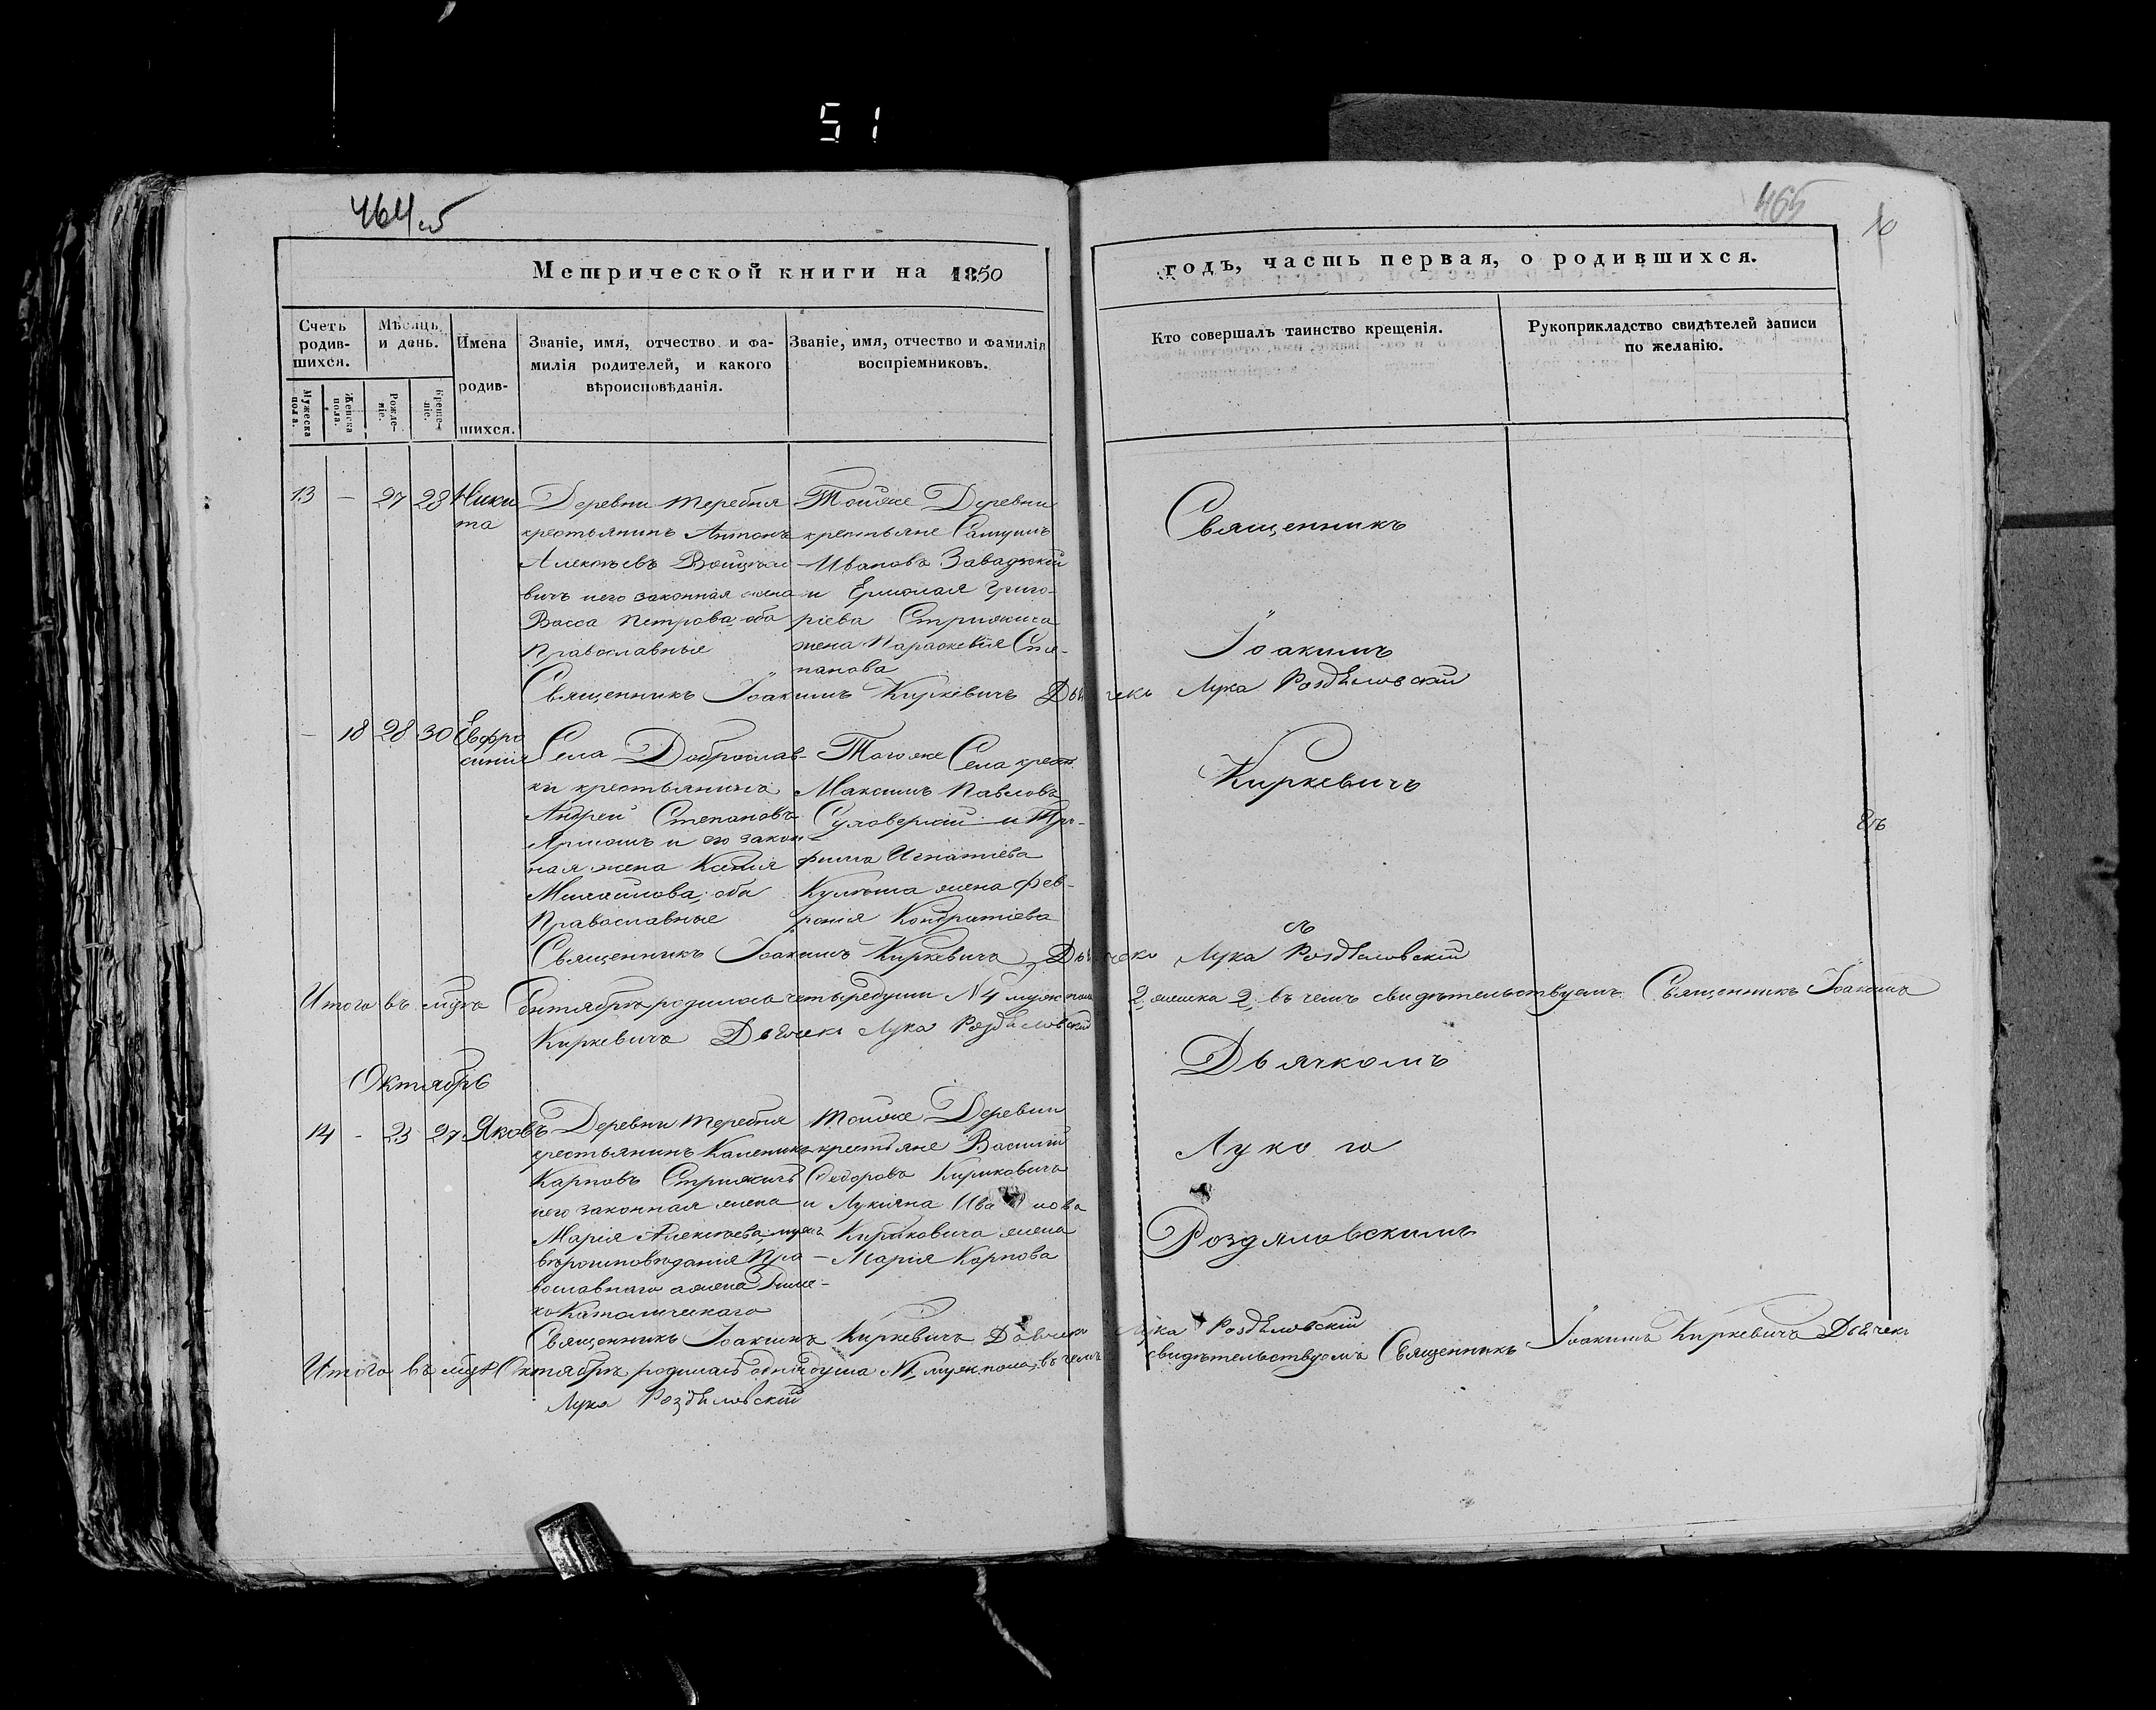 51
464 об
465
10
Метрической книги на 1850
годъ, часть первая, о родившихся.
Счетъ родив-шихся.
Мужеска пола.
Женска пола.
Мѣсяцъ и день.
Рожде-ніе.
Креще-ніе.
Имена родив-шихся.
Званіе, имя, отчество и фа-
милія родителей, и какого
вѣроисповѣданія.
Званіе, имя, отчество и фамилія
воспріемниковъ.
Кто совершалъ таинство крещенія.
Рукоприкладство свидѣтелей записи
по желанію.
13 — 27 28 Ники
та
Деревни Теребня
крестьянинъ Антонъ
Алексѣевъ
вичъ и его законная жена
Васса Петрова оба
Православные
Тойже Деревни
крестьяне Самуилъ
Ивановъ Завадзкой
и Ермолая Григо-
ріева Стрижича
жена Параскевія Сте-
панова
Священникъ Іоакимъ Киркевичъ Дьячекъ Лука Роздѣловскій
— 18 28 30 Евфро
синія
Села Доброслав-
ки крестьянинъ
Андрей Степановъ
и его закон
ная жена Ксенія
Михайлова оба
Православные
Тогоже Села крест.
Максимъ Павловъ
и Тро-
фима Игнатіева
жена Фев-
ронія Кондратіева
Священникъ Іоакимъ Киркевичъ Дьячекъ Лука Роздѣловскій
Итого въ мцѣ Сентябрѣ родилось четыре души N 4 муж пола 2 женска 2 въ чемъ свидѣтельствуемъ Священникъ Іоакимъ
Киркевичъ Дьячекъ Лука Роздѣловскій
Октябрь
14 - 23 27 Яковъ
Деревни Теребня
крестьянинъ Каленикъ
Карповъ Стрижичъ
и его законная жена
Марія Алексѣева мужъ
вѣроисповѣданія Пра
вославнаго а жена Рим-
ко Католическаго
Тойже Деревни
крестьяне Василій
Федоровъ Кириковичъ
и Лукіяна Иванова
Кириковича жена
Марія Карпова
Священникъ Іоакимъ Киркевичъ Дьячекъ Лука Роздѣловскій
Итого въ мцѣ Октябрѣ родилась одна душа N 1 муж пола, въ чемъ свидѣтельствуемъ Священникъ Іоакимъ Киркевичъ Дьячекъ
Лука Роздѣловскій
Священникъ
Іоакимъ
Киркевичъ
съ
Дьячкомъ
Лукою
Роздяловскимъ